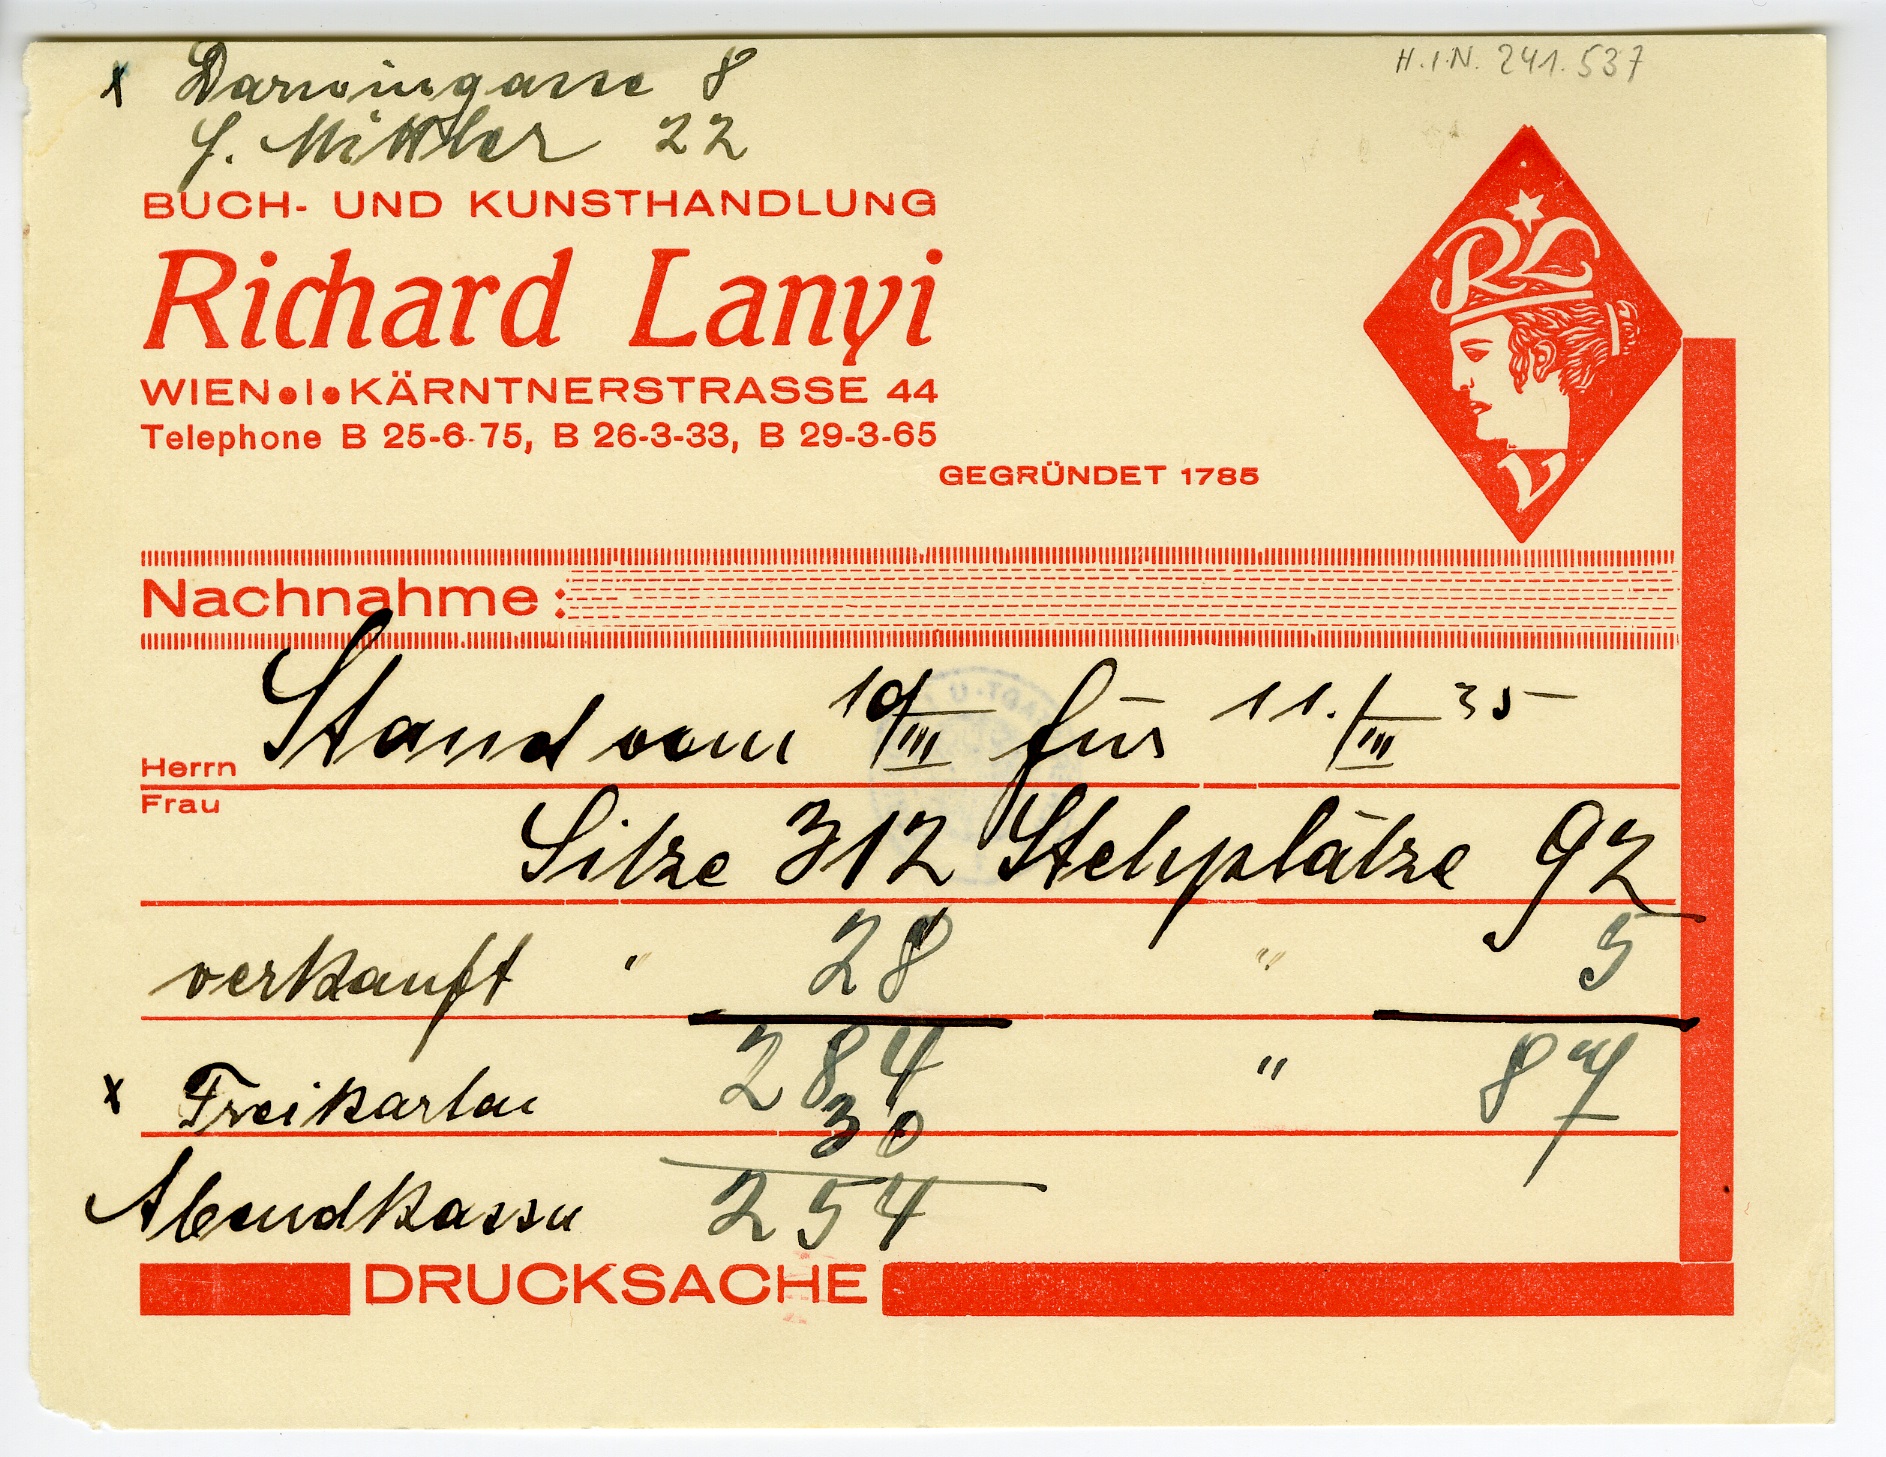 x Darwingasse 8
H.I.N. 241.537
Mittler 22
BUCH- UND KUNSTHANDLUNG
Richard Lanyi
WIEN•I•KÄRNTNERSTRASSE 44
Telephone B 25-6-75, B 26-3-33, B 29-3-65
GEGRÜNDET 1785
RL
V
Nachnahme :
Stand vom 10/III für 11./III 35
Herrn
Frau
Sitze 312 Stehplätze 92
verkauft " 28 " 5
284 " 87
x Freikarten 30
Abendkassa 254
DRUCKSACHE